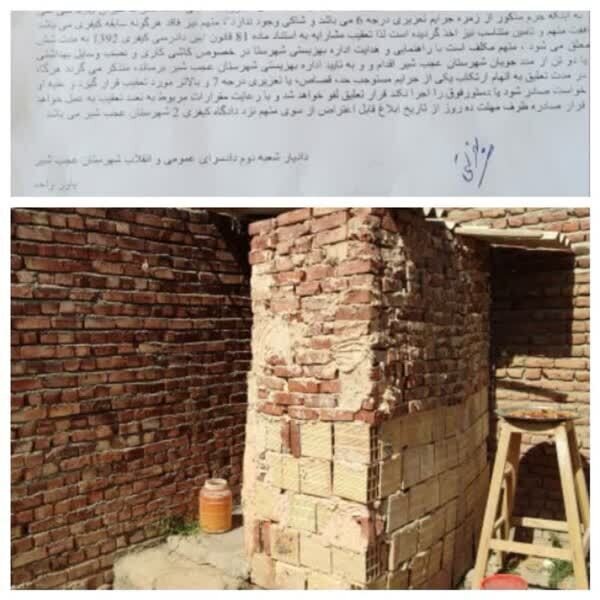 به اینکه جرم مذکور از زمره جرایم تعزیری درجه 6 می باشد و شاکی وجود ندارد ، متهم نیز فاقد هرگونه سابقه کیفری می باشد
متهم و تامین متناسب نیز اخذ گردیده است لذا تعقیب مشارالیه به استناد ماده 81 قانون آیین دادرسی کیفری 1392 به مدت شش
معلق می شود ، متهم مکلف است با راهنمایی و هدایت اداره بهزیستی شهرستان در خصوص کاشی کاری و نصب وسایل بهداشتی
یا دو تن از مدد جویان شهرستان عجب شیر اقدام و و به تایید اداره بهزیستی شهرستان عجب شیر برساند، متذکر می گردد هرگاه
در مدت تعلیق به اتهام ارتکاب یکی از جرایم مستوجب حد، قصاص، یا تعزیری درجه 7 و بالاتر مورد تعقیب قرار گیرد و علیه او
خواست صادر شود یا دستورفوق را اجرا نکند قرار تعلیق لغو خواهد شد و با رعایت مقررات مربوط به تعدد تعقیب به عمل خواهد
قرار صادره ظرف مهلت ده روز از تاریخ ابلاغ قابل اعتراض از سوی متهم نزد دادگاه کیفری 2 شهرستان عجب شیر می باشد
دادیار شعبه دوم دادسرای عمومی و انقلاب شهرستان عجب شیر